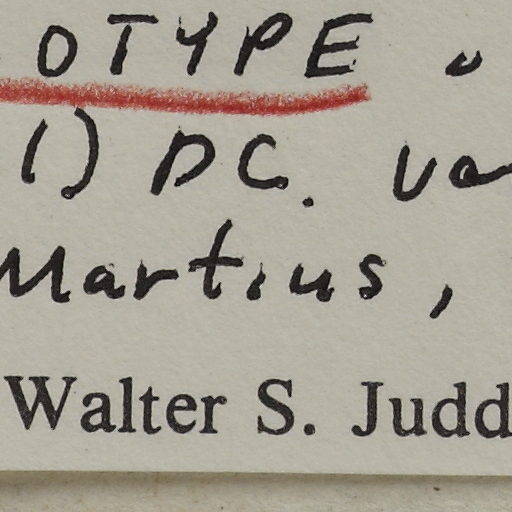 OTYPE o
l) DC. va
Martius,
Walter S. Judd